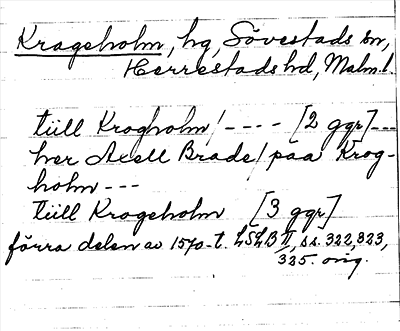 Krageholm, hg, Sövestads sn,
Herrestads hd, Malm. l.
tiill Krogholm/ - - - - [2 ggr] - - -
her Axell Brade/ paa Krog-
holm - - -
tiill Krogeholm [3 ggr]
förra delen av 1570-t. LSLB II, ss. 322, 323,
325. orig.